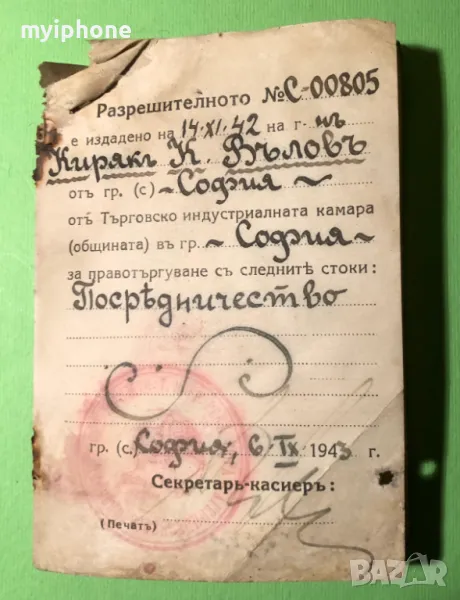 myiphone
Разрешителното №С-00805
е издадено на 14.XI.42 на г-нъ
Кирякъ К. Въловъ
отъ гр. (с) ~ София ~
отъ Търговско индустриалната камара
(общината) въ гр. ~ София ~
за правотъргуване съ следнитѣ стоки:
Посрѣдничество
гр. (с.) София, 6.IX 1943 г.
Секретарь-касиеръ:
(Печатъ)
BAZAR